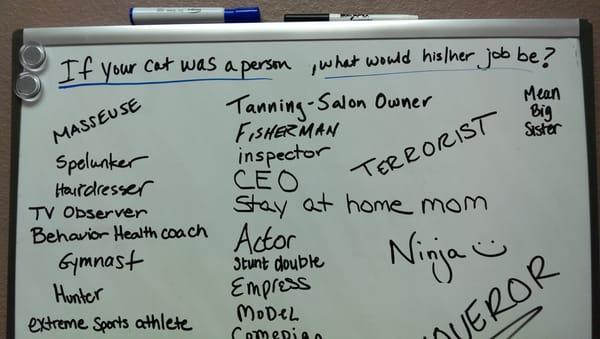 If your cat was a person, what would his/her job be?
MASSEUSE
Spelunker
Hairdresser
TV Observer
Behavior Health coach
Gymnast
Hunter
extreme sports athlete
Tanning-Salon Owner
FISHERMAN
inspector
CEO
Stay at home mom
Actor
Stunt double
Empress
MODEL
TERRORIST
Ninja
Mean
Big
Sister